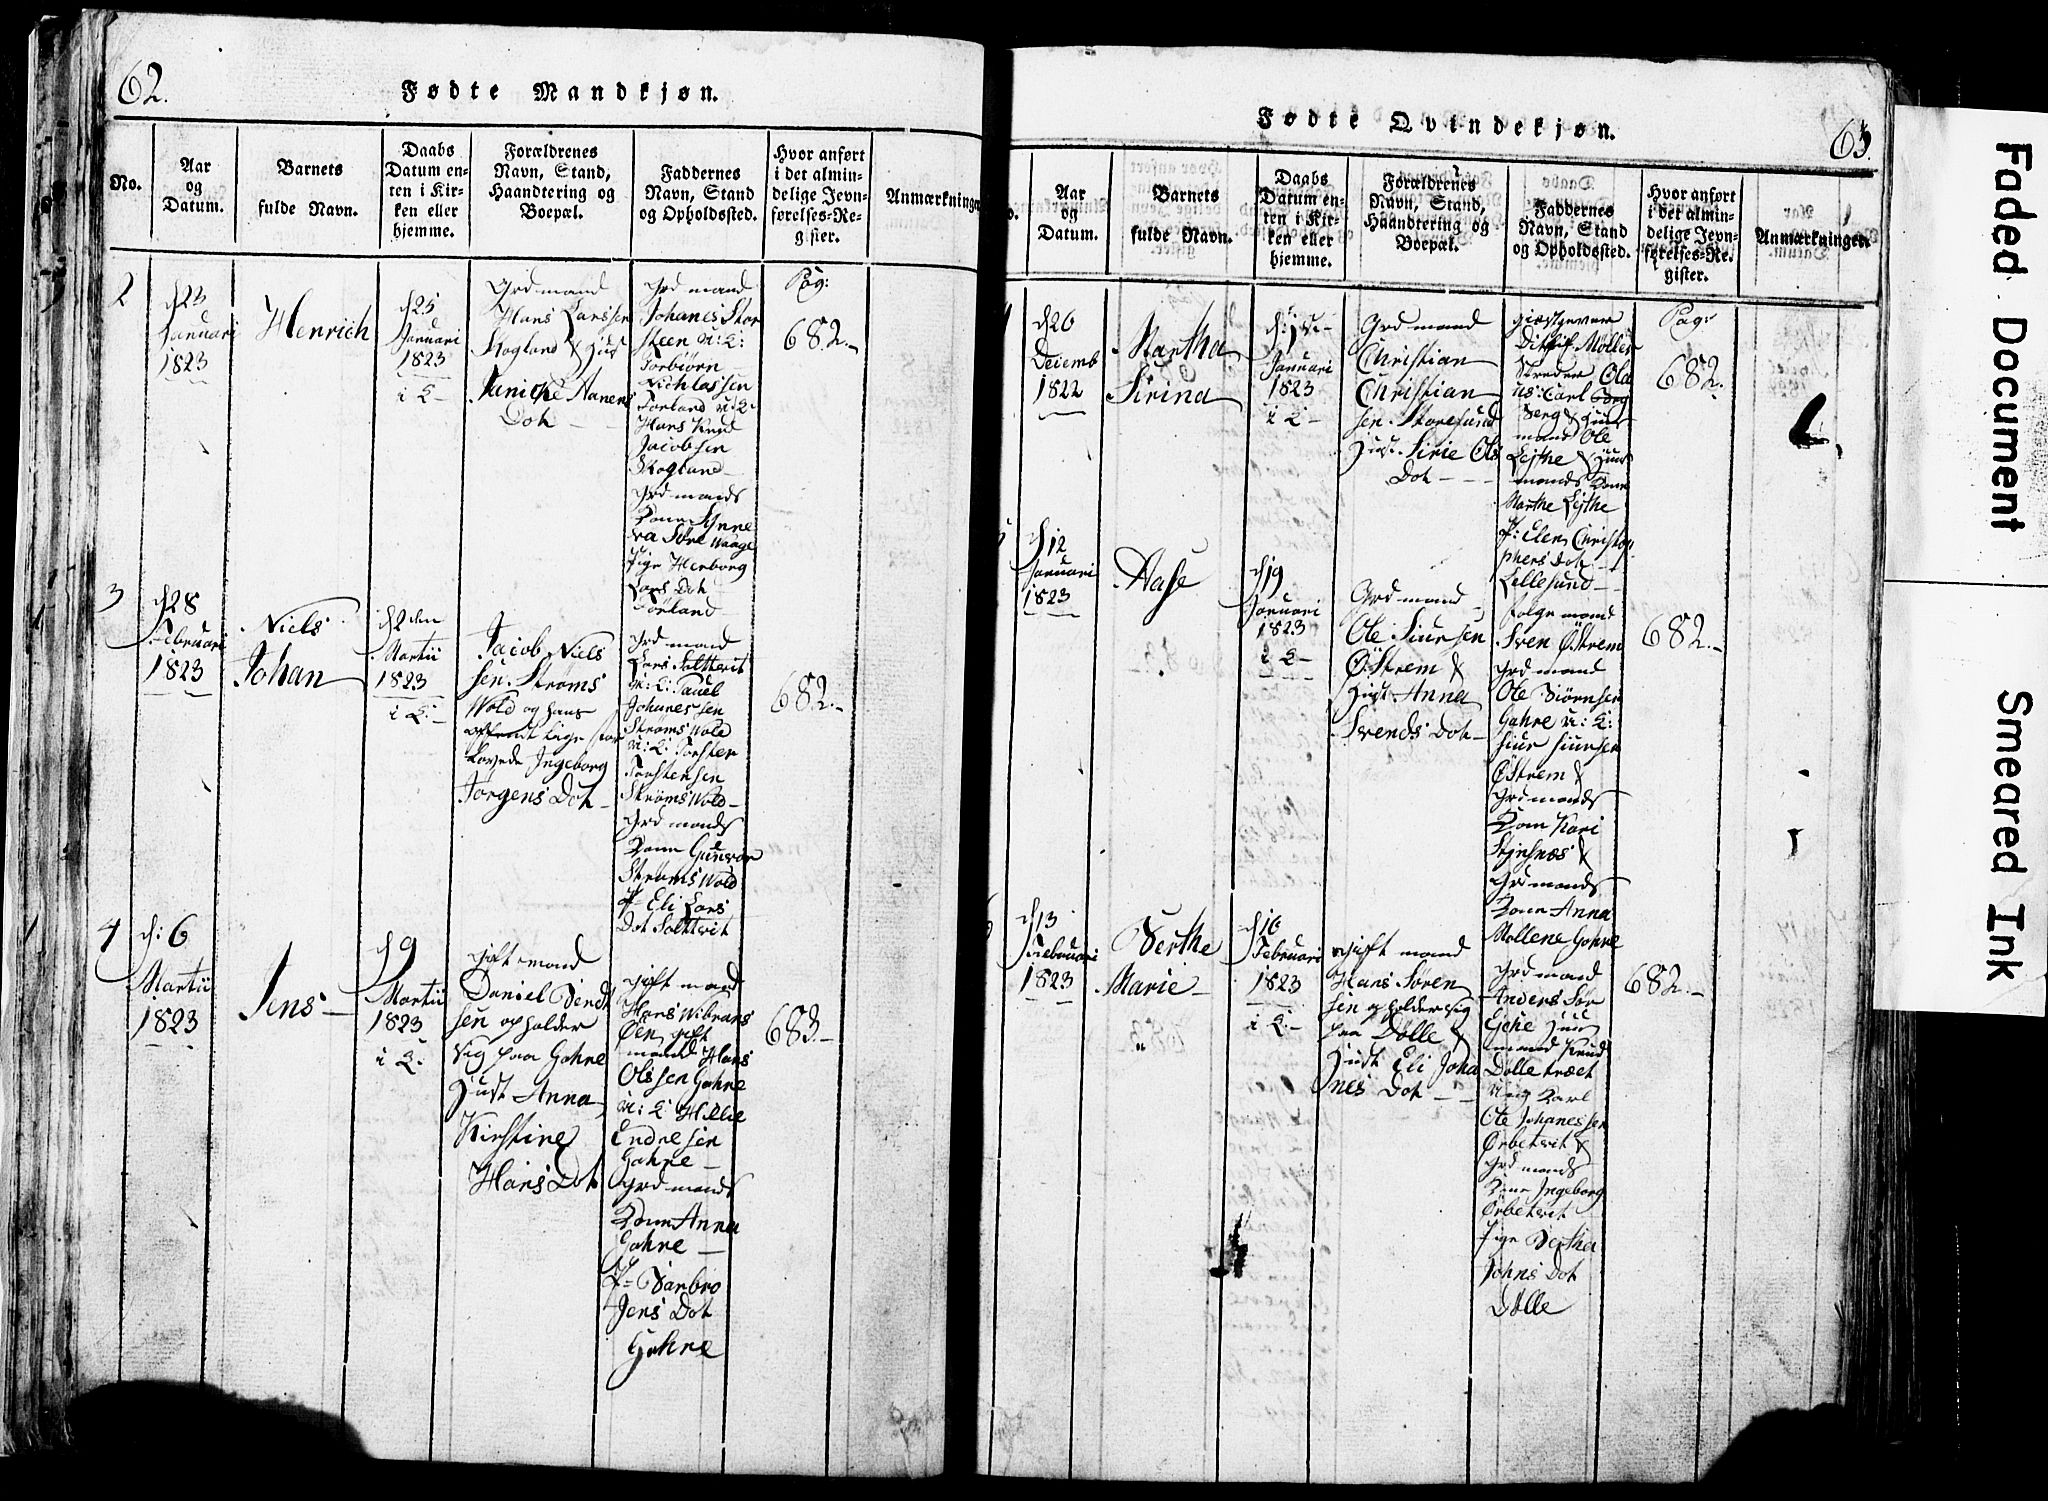 62.
Fødte Mandkjøn.
No.
Aar
og
Datum.
Barnets
fulde Navn.
Daabs
Datum en=
ten i Kir=
ken eller
hjemme.
Forældrenes
Navn, Stand,
Haandtering og
Boepæl.
Faddernes
Navn, Stand
og Opholdssted.
Hvor anført
i det almin=
delige Jevn=
førelses=Re=
gister.
Anmærkninger
2
d 23
Januari
1823
Henrich
d 25
Januari
1823
i K
Grdmand
Hans Larssen
Skogland & Hust
Janicke Hanens
Dott
Grdmand
Johanes Stor
steen u: K:
Torbiörn
Nichlassen
Førland u: K
Hans Knud
Jacobsen
Skogland
Grdmands
Kone Synne
va Søre Waage
Pige Herborg
Lars Dot
Førland
Pag:
682.
3
d 28
Februari
1823
Niels
Johan
d 2 den
Martii
1823
i K:
Jacob Niels
sen Strøms
Wold og hans
lige for
lovede Ingeborg
Jørgens Dot
Grdmand
Lars Saltvit
u: K: Pauel
Johanessen
Strøms Wold
u: K: Torsten
Torstensen
Strøms Wold
Grdmands
Kone Gunvor
Strøms Wold
P= Eli Lars
Dot Saltvit
682.
4
d: 6
Martii
1823
Jens
d 9
Martii
1823
i K:
gift mand
Daniel Bendt
sen opholder
sig paa Gahre
Hust Anna
Kirstine
Hans Dot
gift mand
Hans Wibrans
Øen gift
mand Hans
Olssen Gahre
u: K Hellie
Endresen
Gahre
Grdmands
Kone Anna
Gahre
P= Barbro
Jens Dot
Gahre
683.
63.
Fødte Qvindekjøn.
Aar
og
Datum.
Barnets
fulde Navn.
Daabs
Datum en=
ten i Kir=
ken eller
hjemme.
Forældrenes
Navn, Stand,
Haandtering og
Boepæl.
Faddernes
Navn, Stand
og Opholdssted.
Hvor anført
i det almin=
delige Jevn=
førelses=Re=
gister.
Anmærkninger.
d 26
Decemb
1822
Martha
Sirina
d: 1
Januari
1823
i K
Grdmand
Christian
Christian
sen Storesund
Hust Sirie Ols
Dot
giæstgever
Ditlef Møller
Ole
mand Ole
Lejthe & Huus
mands Kone
Marthe Lejthe
P: Elen Christop
phers Dot
Lillesund
Pag:
682.
d 12
Januari
1823
Aase
d 19
Januari
1823
i K
Grdmand
Ole Siursen
Østrem &
Hust Anna
Svends Dot
folgemand
Sven Østrem
Grdmand
Ole Biørnsen
Gahre u: K:
Siur Siursen
Østrem &
Grdmands
Kone Kari
Stensnæs &
Grdmands
Kone Anna
Mallene Gahre
682.
d 13
Februari
1823
Berthe
Marie
d 16
Februari
1823
i K:
gift mand
Hans Søren
sen opholder sig
paa Dølle &
Hust Eli Joha
nes Dot
Grdmand
Anders Sør
Ejhe Huus
mand Knud
Dølle træet
ung Karl
Ole Johanessen
Ørbetvit &
Grdmands
Kone Ingeborg
Ørbetvit
Pige Bertha
Johns Dot
Dølle
682.
Faded Document
Smeared Ink